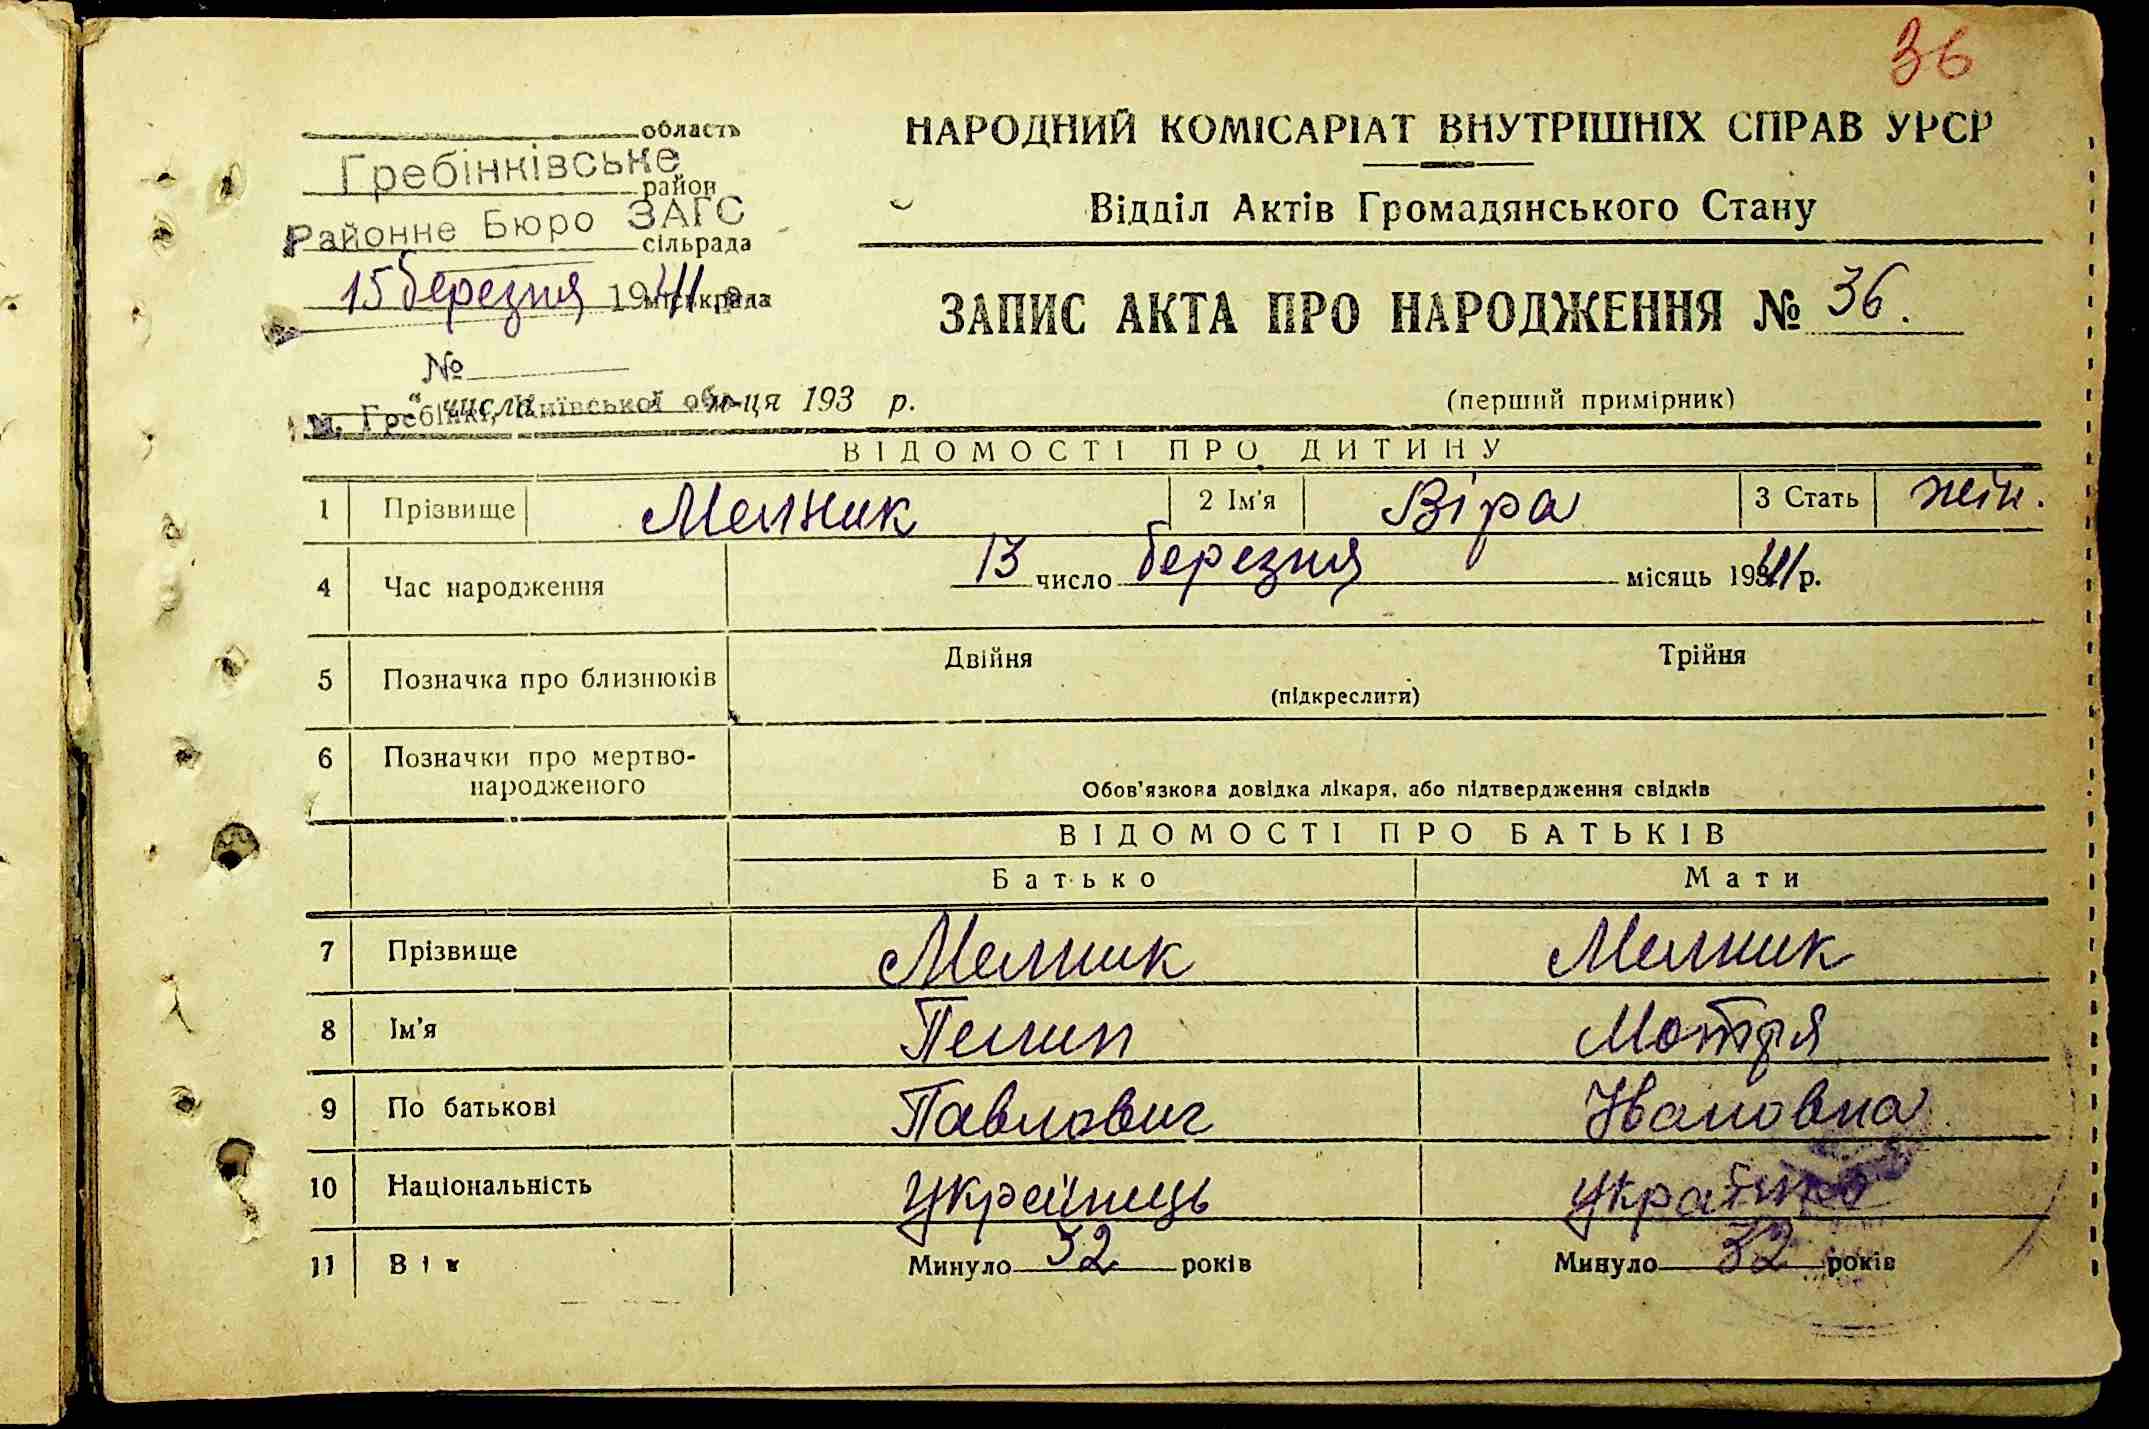 36
область
Гребінківське
район
Районне Бюро ЗАГС
сільрада
15 березня 1941 р.
міськрада
№
м. Гребінки, Київської обл.
" числа м-ця 193 р.
НАРОДНИЙ КОМІСАРІАТ ВНУТРІШНІХ СПРАВ УРСР
Відділ Актів Громадянського Стану
ЗАПИС АКТА ПРО НАРОДЖЕННЯ № 36.
(перший примірник)
ВІДОМОСТІ ПРО ДИТИНУ
1 Прізвище Мелник 2 Ім'я Віра 3 Стать жін.
4 Час народження 13 число березня місяць 1941 р.
5 Позначка про близнюків Двійня Трійня
(підкреслити)
6 Позначки про мертво-
народженого
Обов'язкова довідка лікаря, або підтвердження свідків
ВІДОМОСТІ ПРО БАТЬКІВ
Батько Мати
7 Прізвище Мелник Мелник
8 Ім'я Пилип Мотря
9 По батькові Павлович Ивановна
10 Національність Українець Українка
11 Вік Минуло 32 років Минуло 32 років